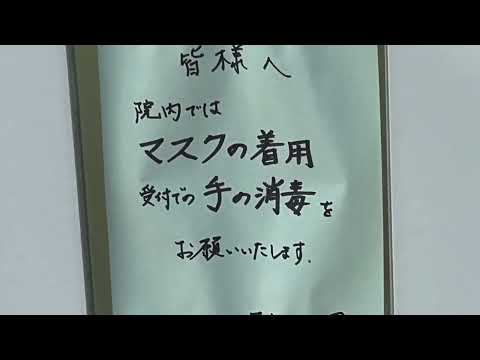 皆様へ
院内では
マスクの着用
受付での手の消毒を
お願いいたします.